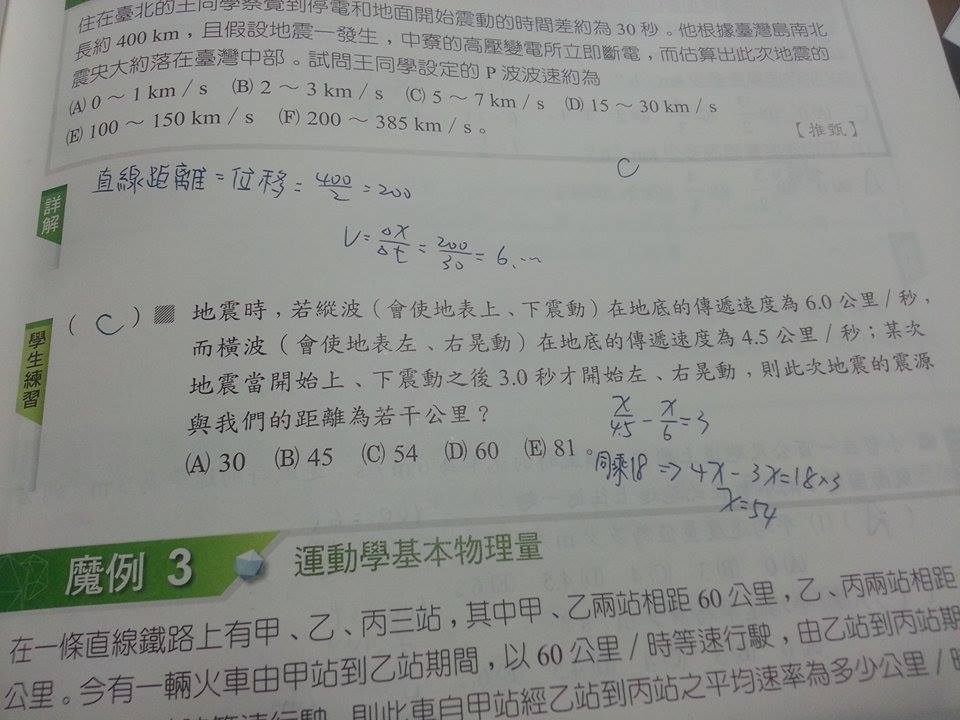 住在臺北的王同學察覺到停電和地面開始震動的時間差約為 30 秒。他根據臺灣島南北
長約 400 km,且假設地震一發生,中寮的高壓變電所立即斷電,而估算出此次地震的
震央大約落在臺灣中部。試問王同學設定的 P 波波速約為
(A) 0 ~ 1 km / s (B) 2 ~ 3 km / s (C) 5 ~ 7 km / s (D) 15 ~ 30 km / s
(E) 100 ~ 150 km / s (F) 200 ~ 385 km / s。
【推甄】
C
詳解
直線距離 = 位移 = 400/2 = 200
V = Δx/Δt = 200/30 = 6.…
學生練習
( C ) 地震時,若縱波(會使地表上、下震動)在地底的傳遞速度為 6.0 公里/秒,
而橫波(會使地表左、右晃動)在地底的傳遞速度為 4.5 公里/秒;某次
地震當開始上、下震動之後 3.0 秒才開始左、右晃動,則此次地震的震源
與我們的距離為若干公里?
(A) 30 (B) 45 (C) 54 (D) 60 (E) 81。
x/4.5 - x/6 = 3
同乘18 => 4x - 3x = 18×3
x = 54
魔例 3 運動學基本物理量
在一條直線鐵路上有甲、乙、丙三站,其中甲、乙兩站相距 60 公里,乙、丙兩站相距
公里。今有一輛火車由甲站到乙站期間,以 60 公里/時等速行駛,由乙站到丙站期
則此車自甲站經乙站到丙站之平均速率為多少公里/時